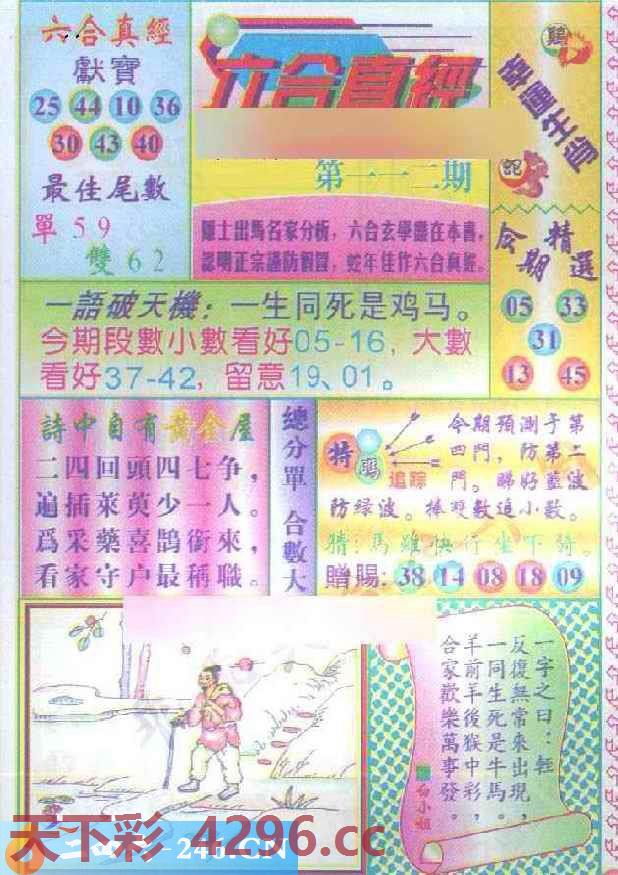 六合真經
獻寶
25 44 10 36
30 43 40
最佳尾數
單 59
雙 62
六合真經
第一一二期
隱士出馬名家分析，六合玄學盡在本書，
認明正宗謹防假冒，蛇年佳作六合真經。
雞
幸運生肖
蛇
今期精選
05 33
31
13 45
一語破天機：一生同死是鸡马。
今期段數小數看好05-16，大數
看好37-42，留意19、01。
詩中自有黃金屋
二四回頭四七争，
遍插萊萸少一人。
爲采藥喜鵲銜來，
看家守户最稱職。
總分單 合數大
特碼
追踪
今期預測于第
四門，防第二
門。睇好藍波
防绿波。捧雙數追小數。
猜：馬雖快行坐下騎。
贈賜：38 14 08 18 09
一字之曰：輕
反復無常來出現，
一同生死是牛馬。
羊前羊後猴中彩，
合家歡樂萬事發。
白小姐
天下彩 4296.cc
246.CN